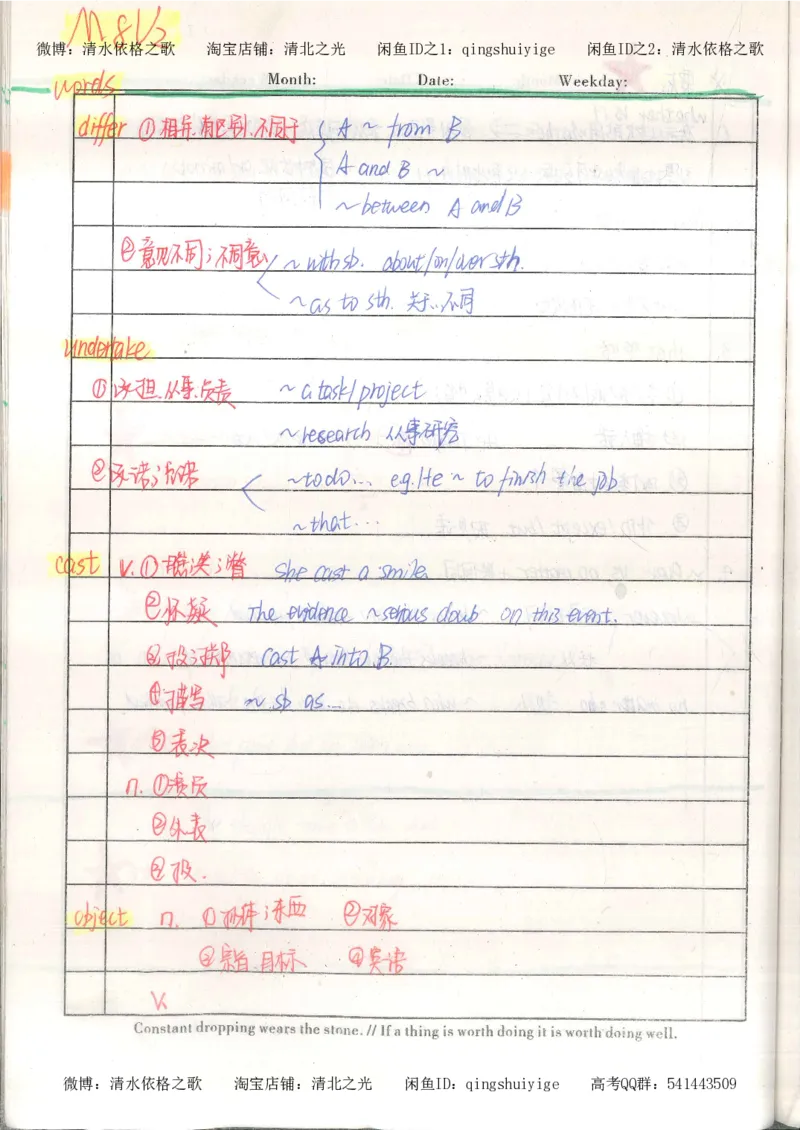 M8U2
微博：清水依格之歌 淘宝店铺：清北之光 闲鱼ID之1：qingshuiyige 闲鱼ID之2：清水依格之歌
words
Month: Date: Weekday:
differ ①相异.有区别.不同于 { A ~ from B
A and B ~
~between A and B
②意见不同；不同意 ~ with sb. about/on/over sth.
~as to sth. 关于…不同
undertake
①承担.从事.负责 ~ a task/project
~research 从事研究
②承诺；允诺 ~to do... eg. He ~ to finish the job
~that...
cast v. ① she cast a smile.
②怀疑 The evidence ~serious doub on this event.
③投 cast A into B.
④描写 ~ sb as...
⑤表决
n. ①演员
②外表
③投.
object n. ①物体；东西 ②对象
③宗旨.目标 ④宾语
v.
Constant dropping wears the stone. // If a thing is worth doing it is worth doing well.
微博：清水依格之歌 淘宝店铺：清北之光 闲鱼ID：qingshuiyige 高考QQ群：541443509